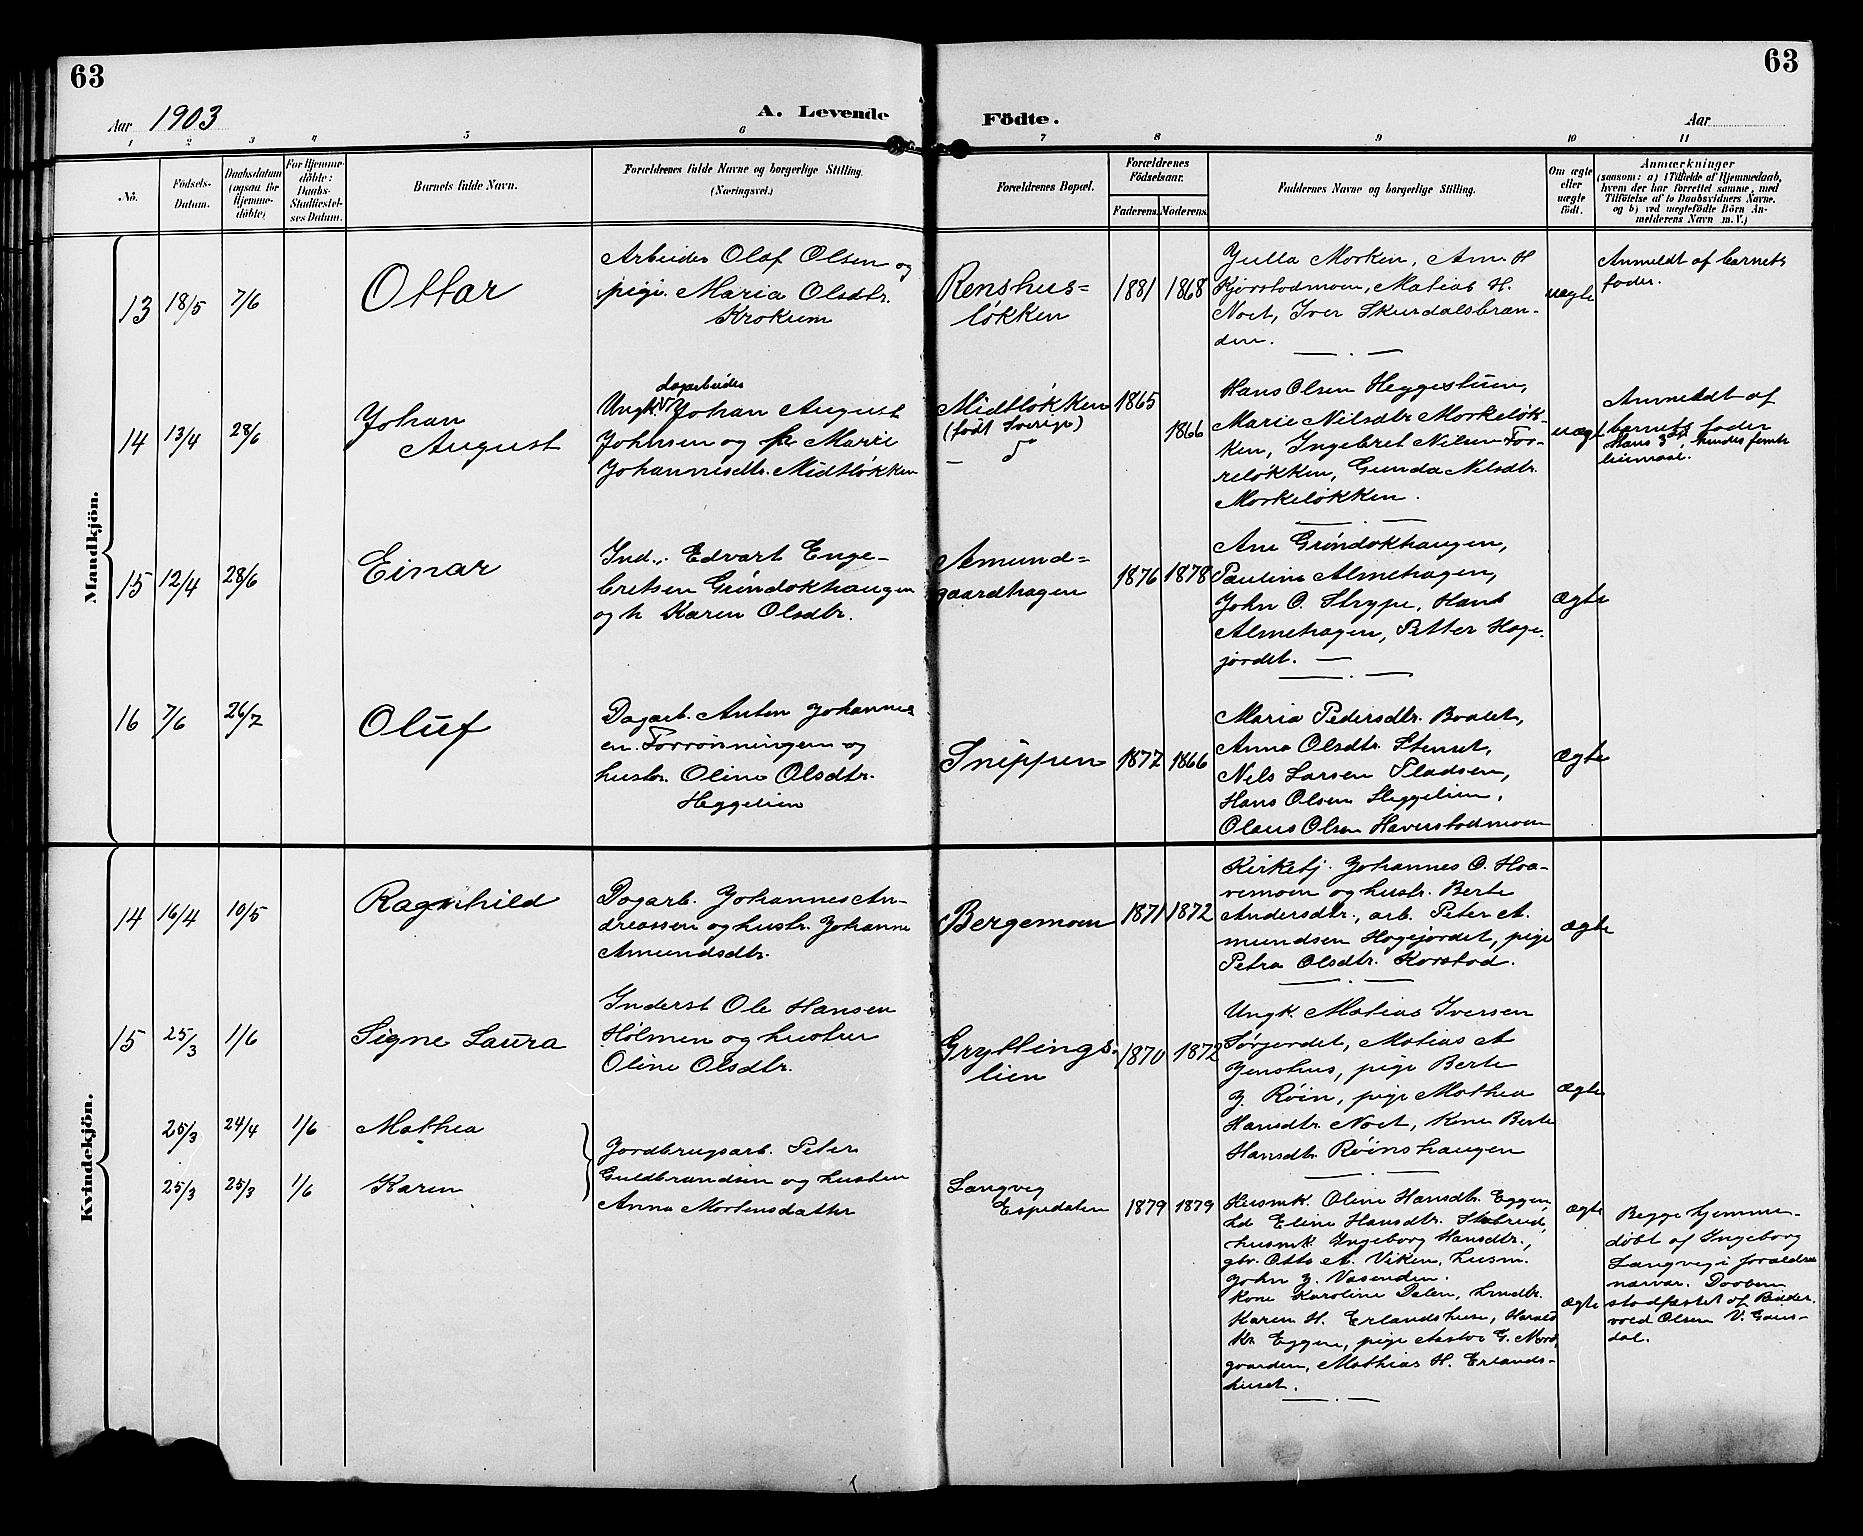 63
63
Aar 1903
A. Levende
Födte.
Aar
1 2 3 4 5 6 7 8 9 10 11
No.
Födsels-
Datum.
Daabsdatum
(ogsaa for
Hjemme-
döbte)
For Hjemme-
döbte:
Daabs-
Stadfæstel-
ses Datum.
Barnets fulde Navn.
Forældrenes fulde Navne og borgerlige Stilling.
(Næringsvei.)
Forældrenes Bopæl.
Forældrenes
Födselsaar.
Faderens.
Moderens.
Faddernes Navne og borgerlige Stilling.
Om ægte
eller
uægte
födt.
Anmærkninger
(saasom: a) i Tilfælde af Hjemmedaab,
hvem der har forrettet samme, med
Tilföielse af to Daabsvidners Navne.
og b) ved uægtefödte Börn An-
melderens Navn m. V.)
Mandkjön.
13 18/5 7/6
Ottar
Arbeider Olaf Olsen og
pige. Maria Olsdtr.
Krokum
Renshus-
løkken
1881 1868
Julla Morken, Ane H
Kjørstadmoen, Matias H.
Noet, Iver Skurdalsbræn-
den.
uægte
Anmeldt af barnets
fader.
14 13/4 28/6
Johan
August
dagarbeider
Ungk. Johan August
Johnsen og Marie
Johannesdtr. Midtløkken
Midtløkken
(født Sverige)
1865
1866
Hans Olsen Heggestuen,
Marie Nilsdtr Morkeløk-
ken, Ingebret Nilsen For-
reløkken, Gunda Nilsdtr.
Morkeløkken.
uægte
Anmeldt af
barnets fader
Hans 3die, hendes femte
leiermaal.
15 12/4 28/6
Einar
Ind., Edvart Enge-
bretsen Grøndokhaugen
og h Karen Olsdtr.
Amund-
gaardhagen
1876 1878
Ane Grøndokhaugen,
Pauline Almehagen,
John O. Strype, Hans
Almehagen, Petter Hage-
jordet.
ægte
16 7/6 26/7
Oluf
Dagarb. Anton Johannes
en. Forrønningen og
hustr. Oline Olsdtr.
Heggelien
Snippen
1872 1866
Maria Pedersdtr. Baalet,
Anna Olsdtr. Stenset,
Nils Larsen Pladsen,
Hans Olsen Heggelien,
Olaus Olsen Haverstadmoen
ægte
Kvindekjön.
14 16/4 10/5
Ragnhild
Dagarb. Johannes An-
dreassen og hustr. Johanne
Amundsdtr.
Bergemoen
1871 1872
Kirkebj. Johannes O. Haa-
vemoen og hustr. Berte
Andersdtr., arb. Peter A-
mundsen Hagejordet, pige
Petra Olsdtr. Korstad.
ægte
15 25/3 1/6
Signe Laura
Inderst Ole Hansen
Holmen og hustru
Oline Olsdtr.
Gryttings-
lien
1870 1872
Ungk. Matias Iversen
Sørjordet, Matias A
Jenshus, pige Berte
J. Røin, pige Mathea
Hansdtr Noet, Kone Berte
Hansdtr Røinshaugen
ægte
25/3 24/4 1/6
Mathea
25/3 25/3 1/6
Karen
Jordbrugsarb. Peter
Guldbrandsen og hustru
Anna Mortensdatter
Langvig
Espedalen
1879 1879
Husmk. Oline Hansdtr. Eggen,
Eline Hansdtr.
husmk. Ingeborg Hansdtr.,
gbr. Otto A. Viken, husm.
John J. Vasenden.
Kone Karoline Dalen,
Karen H. Erlandshuse, Harald
Kr. Eggen, pige G. Nord
gaarden, Mathias H. Erlands-
huset.
ægte
ægte
Begge hjemme-
døbt af Ingeborg
Langvig i forældres
nærvær. Daaben
stadfæstet af
Olsen V. Gaus-
dal.